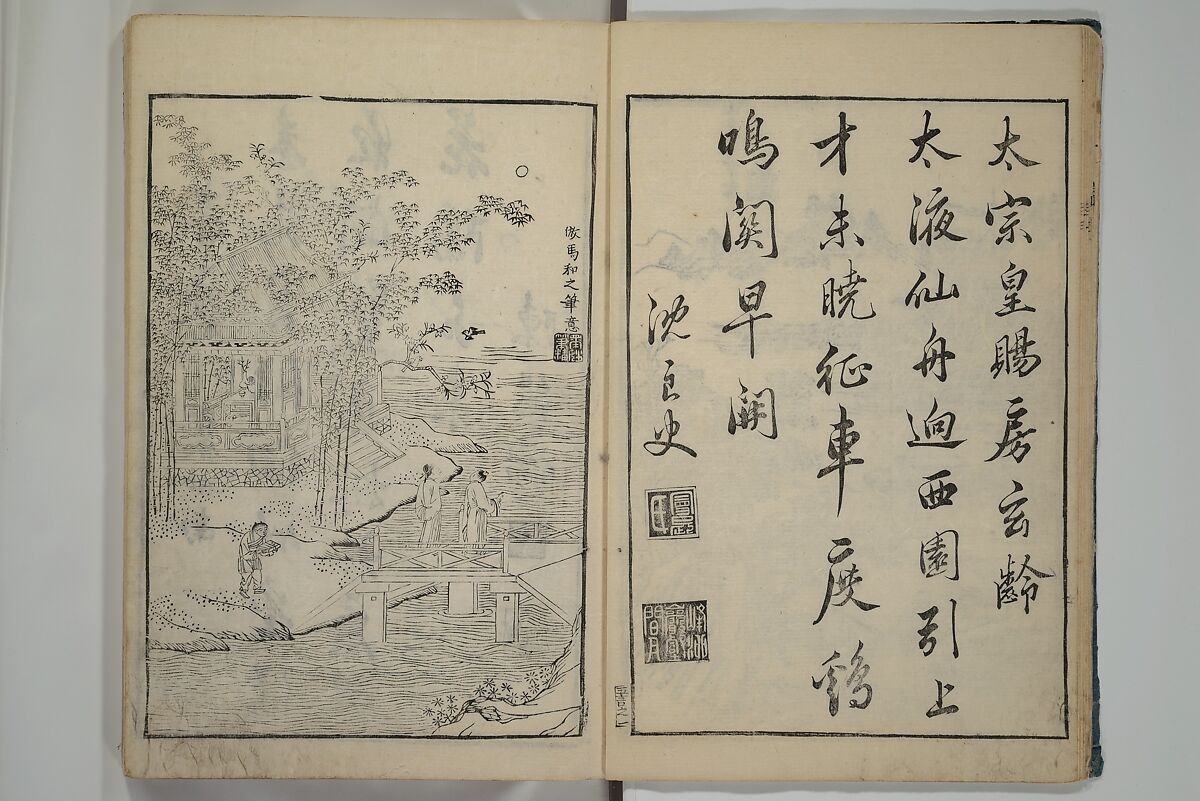 太宗皇賜房玄齡
太液仙舟迥西園引上
才未曉征車度鷄
鳴関早開
沈良史
倣馬和之筆意